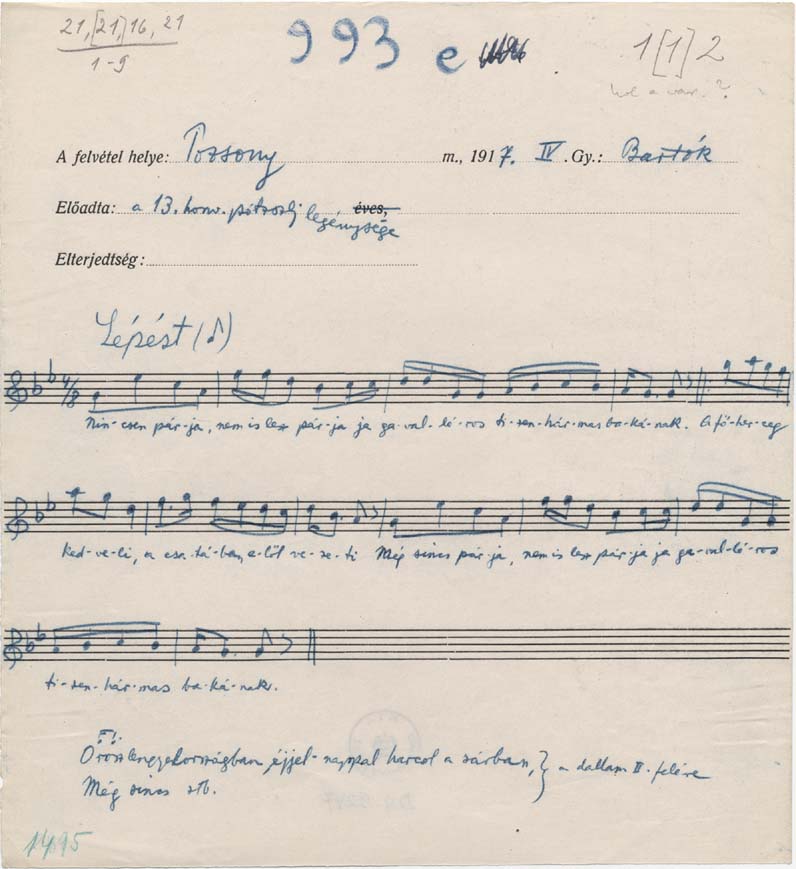 21, [21,] 16, 21
1-9
993 e
1 [1] 2
hol a var. ?
A felvétel helye: Pozsony m., 1917. IV. Gy.: Bartók
Előadta: a 13. honv. pótzszlj legénysége éves,
Elterjedtség:
Lépést (♪)
4/8
Nin-csen pár-ja, nem is lesz pár-ja ja ga-val-lé-ros ti-zen-hár-mas ba-ká-nak. A fő-her-ceg
ked-ve-li, a csa-tá-ban, e-lől ve-ze-ti Még sincs pár-ja, nem is lesz pár-ja ja ga-val-lé-ros
ti-zen-hár-mas ba-ká-nak.
Oroszlengyelországban, éjjel-nappal harcol a sárban, } a dallam II. felére
Még sincs stb.
1495